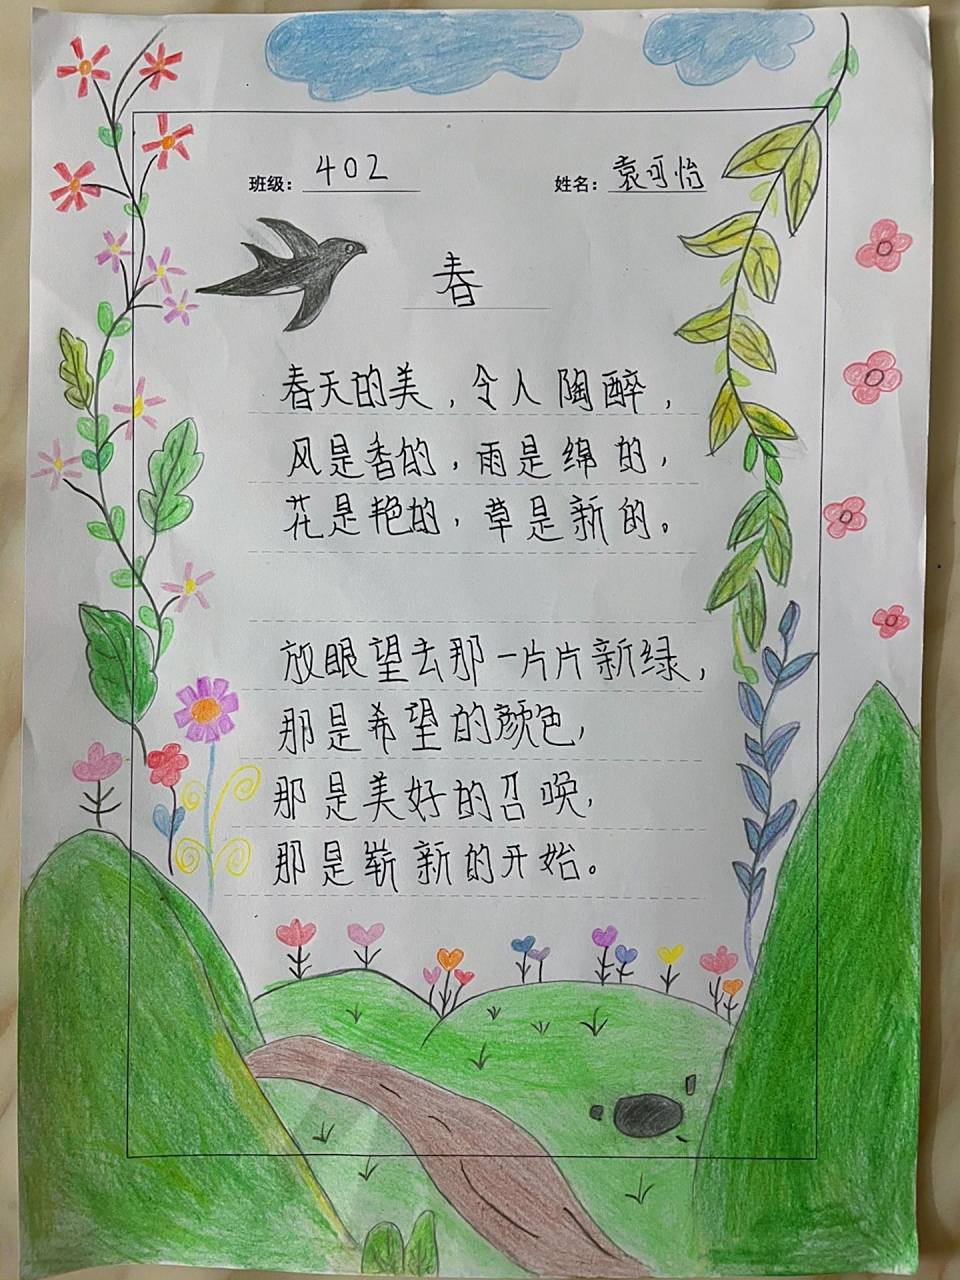 班级：402 姓名：袁可怡
春
春天的美，令人陶醉，
风是香的，雨是绵的，
花是艳的，草是新的。
放眼望去那一片片新绿，
那是希望的颜色，
那是美好的召唤，
那是崭新的开始。